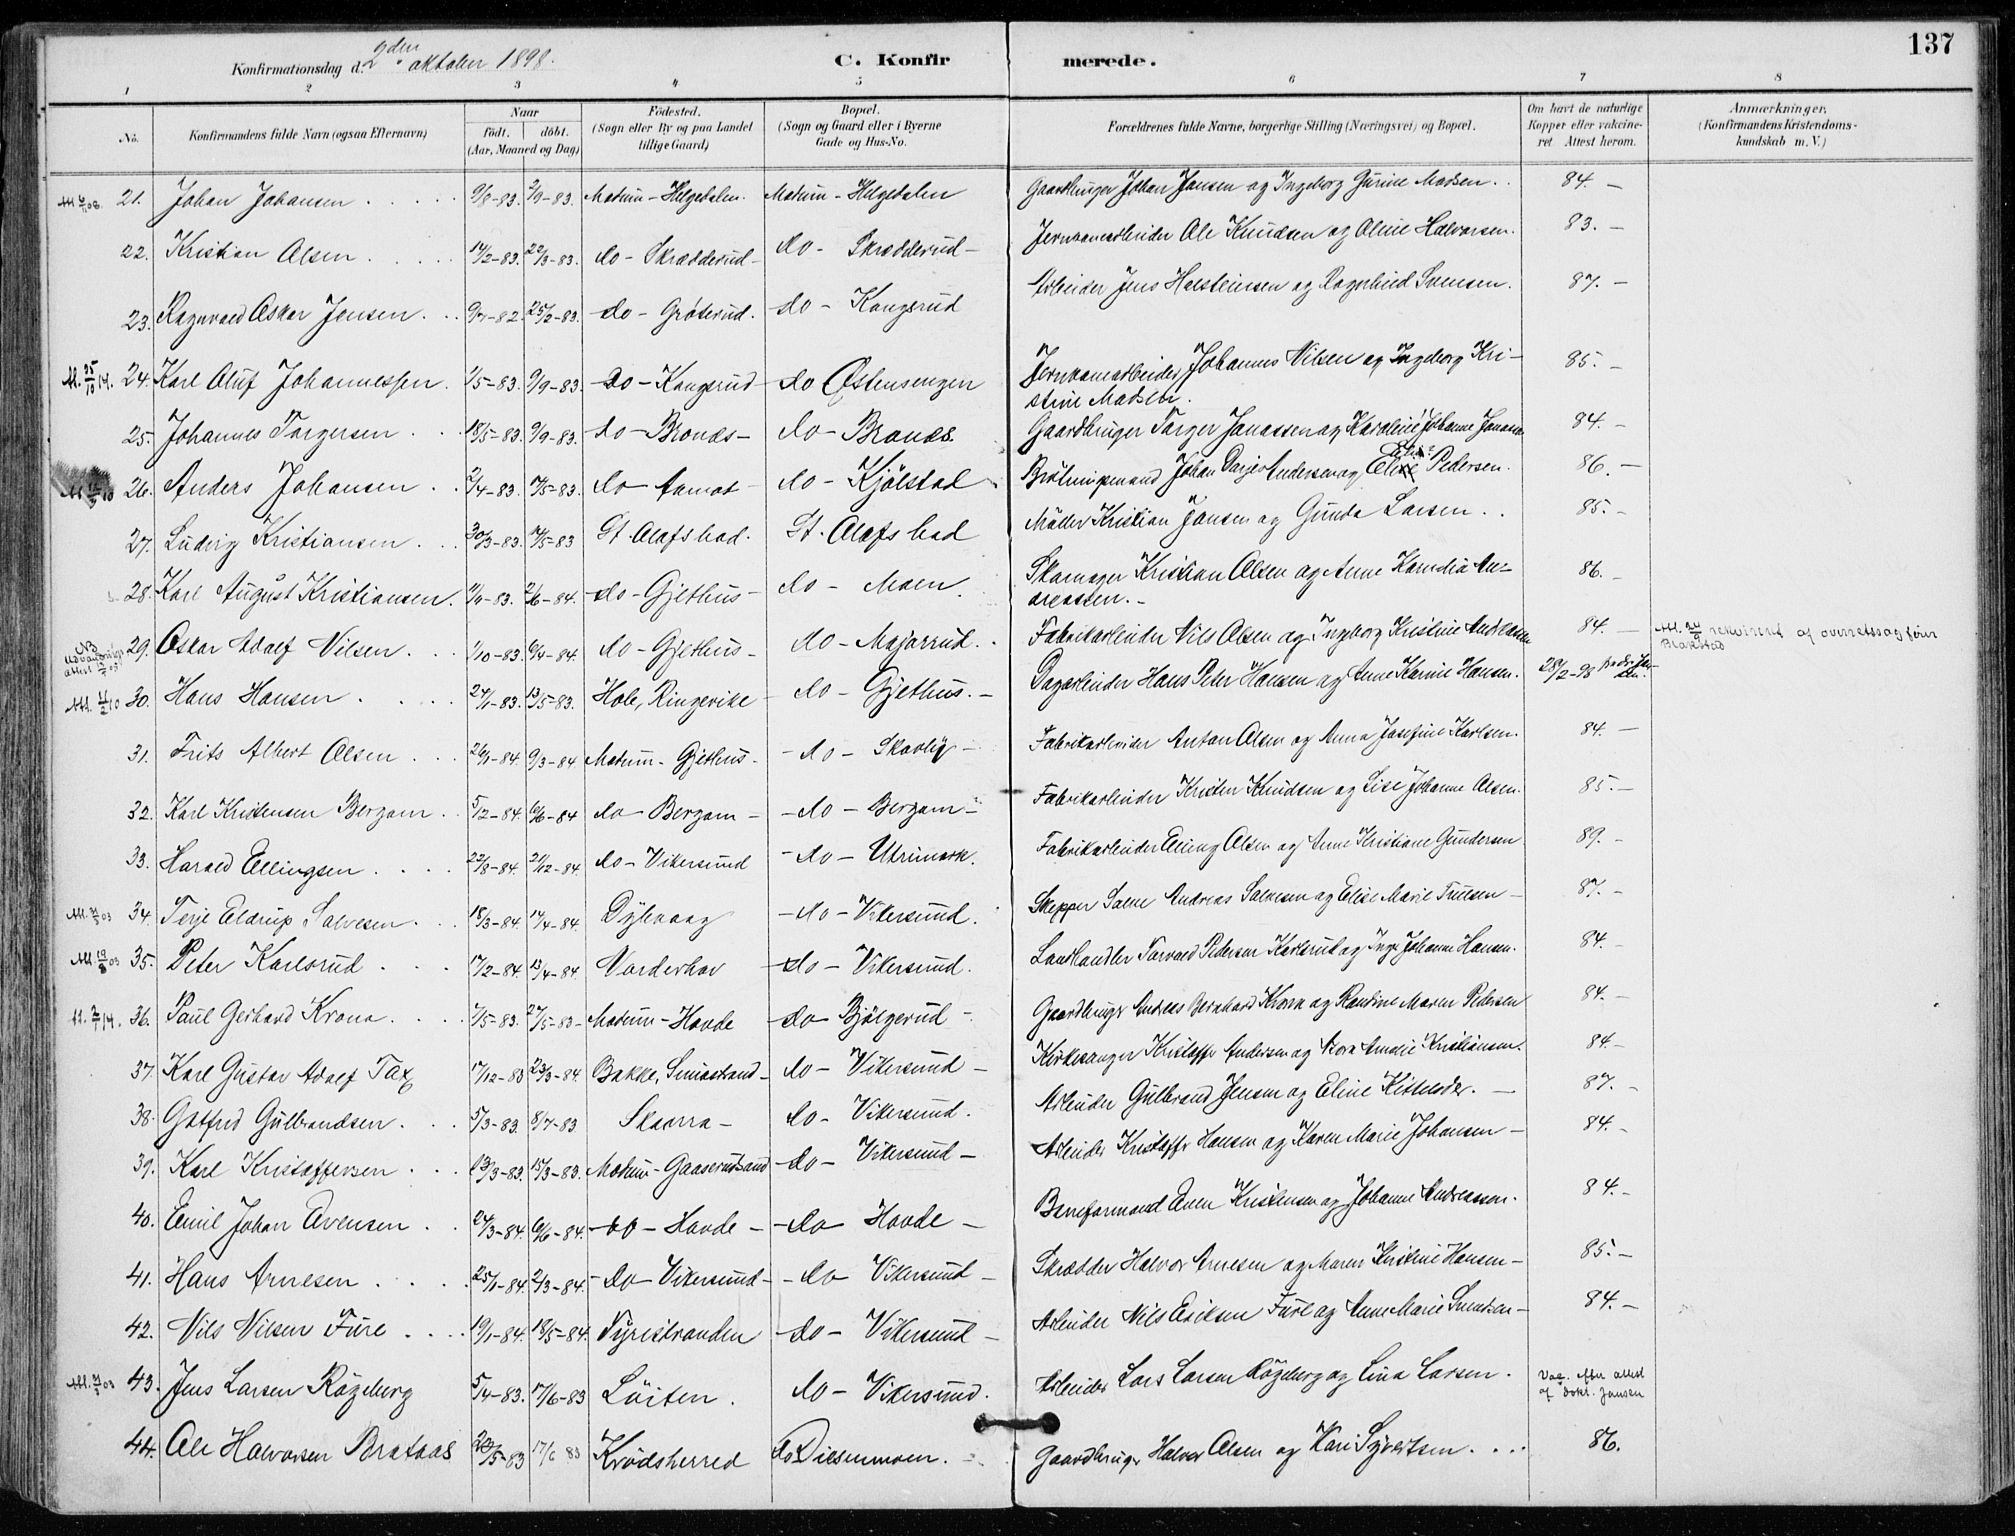 137
Konfirmationsdag d. 2den oktober 1898.
C. Konfirmerede.
1 2 3 4 5 6 7 8
No. Konfirmandens fulde Navn (ogsaa Efternavn) Naar født. døbt. (Aar, Maaned og Dag) Fødested. (Sogn eller By og paa Landet tillige Gaard) Bopæl. (Sogn og Gaard eller i Byerne Gade og Hus-No. Forældrenes fulde Navne, borgerlige Stilling (Næringsvei) og Bopæl. Om havt de naturlige Kopper eller vakcineret Attest herom. Anmærkninger. (Konfirmandens Kristendomskundskab m. V.)
21. Johan Johansen 9/8-83. 2/9-83. Modum - Helgedalen. Modum - Helgedalen Gaardbruger Johan Jansen og Ingeborg Gurine Madsen. 84. -
22. Kristian Olsen 14/2-83. 22/3-83. do - Skrædderud - do - Skrædderud - Jernbanearbeider Ole Knudsen og Oline Halvorsen. 83. -
23. Ragnvald Oskar Jensen 25/2-83. do - Grøterud. do - Kongerud Arbeider Jens Halsteinsen og Ragnhild Svensen. 87. -
24. Karl Oluf Johannessen 1/5-83. 9/9-83. do - Kongerud do Østensengen Jernbanearbeider Johannes Nilsen og Ingeborg Kri-
stine Madsen.
85. -
25. Johannes Torgersen 18/5-83. 9/9-83. do - Braaes - do - Braaes Gaardbruger Torger Jonassen og Karoline Johanne Jonassen 84. -
26. Anders Johansen 2/4-83. do - Aamot - do - Kjølstad Johan Andersen og Pedersen. 86. -
27. Ludvig Kristiansen 30/3-83. 14/5-83 St. Olafsbad. St. Olafs bad Møller Kristian Jansen og Gunda Larsen. 85. -
28. Karl August Kristiansen. 2/6-84. do - Gjethus - do - Moen. Skomager Kristian Olsen og Anne Kornelia An-
dreassen. -
86. -
29. Oskar Adolf Nilsen 1/10-83. 6/4-84. do - Gjethus - do - Majorrud. Fabrikarbeider Nils Olsen og Ingeborg Kristine 84. -
30. Hans Hansen 24/1-83. 13/5-83. Hole, Ringerike do - Gjethus. - Dagarbeider Hans Peter Hansen og Anne Karine Hansen. 28/2-98
31. Frits Albert Olsen 26/1-84. 9/3-84. Modum - Gjethus - do - Skovly - Fabrikarbeider Anton Olsen og Anna Josefine Karlsen. 84. -
32. Karl Kristensen Bergam 5/2-84. 6/6-84 do - Bergam - do - Bergam - Fabrikarbeider Kristen Knudsen og Lise Johanne Olsen. 85. -
33. Harald Ellingsen 22/8-84. 21/12-84. do - Vikersund do - Utrimark. Fabrikarbeider Elling Olsen og Anne Kristiane Gundersen 89. -
34. Terje Eldrup Salvesen 18/3-84. 14/4-84. Dybvaag do - Vikersund. Skipper Andreas Salvesen og Elise Marie 87. -
35. Peter Karlsrud 17/2-84. 13/4-84. Norderhov do - Vikersund. Landhandler Torvald Pedersen Karlsrud og Inga Johanne Hansen. 84. -
36. Paul Gerhard Krona 7/5-83. 27/5-83 - Modum - Hovde do - Bjølgerud - Gaardbruger Andreas Bernhard Krona og Randine Maren Pedersen 84. -
37. Karl Gustav Adolf Tax 17/12-83 23/3-84 Bakke, do - Vikersund - Kirkesanger Kristoffer Andersen og Amalie Kristiansen. 84. -
38. Gotfred Gulbrandsen 5/3-83. 8/7-83 Skaara - do - Vikersund. Arbeider Gulbrand Jensen og Eline Kittelsdr. - 87. -
39. Karl Kristoffersen 13/3-83. 15/3-83. Modum - Gaaserudsand do - Vikersund - Arbeider Kristoffer Hansen og Karen Marie Johansen - 84. -
40. Emil Johan Evensen 24/3-84. 6/6-84. do - Hovde - do Hovde - Baneformand Even Kristensen og Johanne Andreassen. 84. -
41. Hans Arnesen 25/1-84. 2/3-84. do - Vikersund - do Vikersund - Skrædder Halvor Arnesen og Maren Kristine Hansen - 85. -
42. Nils Nilsen Fure 19/1-84. 18/5-84. Tyristranden do - Vikersund - Arbeider Nils Eriksen Fure og Anne Marie 84. -
43. Jens Larsen Røgeberg 5/4-83. 17/6-83 Löiten. do - Vikersund. Arbeider Lars Larsen Røgeberg og Lina Larsen. Vac. efter attest
af Dokt. Jansen
44. Ole Halvorsen Brataas 17/6 83 Krødsherred do Disenmoen. - Gaardbruger Halvor Olsen og Kari Syvertsen. 86.